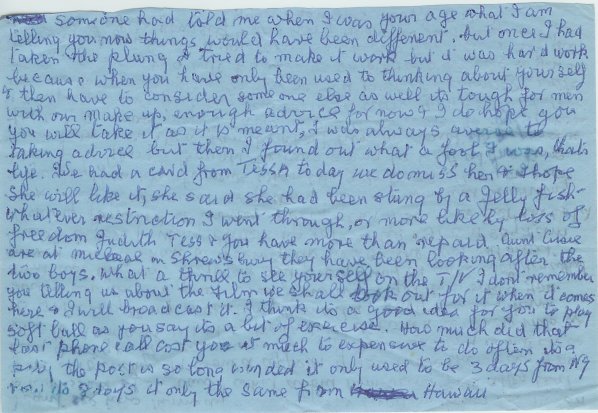 someone had told me when I was your age what I am
telling you now things would have been different. but once I had
taken the plung I tried to make it work but it was hard work
because when you have only been used to thinking about yourself
& then have to consider someone else as well its tough for men
with our make up, enough advice for now & I do hope you
you will take it as it is meant, I was always averse to
taking advice but then I found out what a fool I was, thats
lye. We had a card from TESSA today we do miss her & I hope
She will like it, she said she had been stung by a Jelly fish
what ever restriction I went through, or more likely loss of
freedom Judith Tess & you have more than repaid. Aunt
are at on Shrewsbury they have been looking after the
two boys. What a thrill to see yourself on the T/V I dont remember
you telling us about the Film we shall look out for it when it comes
here & I will broadcast it. I think its a good idea for you to play
soft ball as you say its a bit of exercise. How much did that
last phone call cost you it much to expensive to do often its a
the post is so long winded it only used to be 3 days from NY
do 7 days it only the same from Hawaii